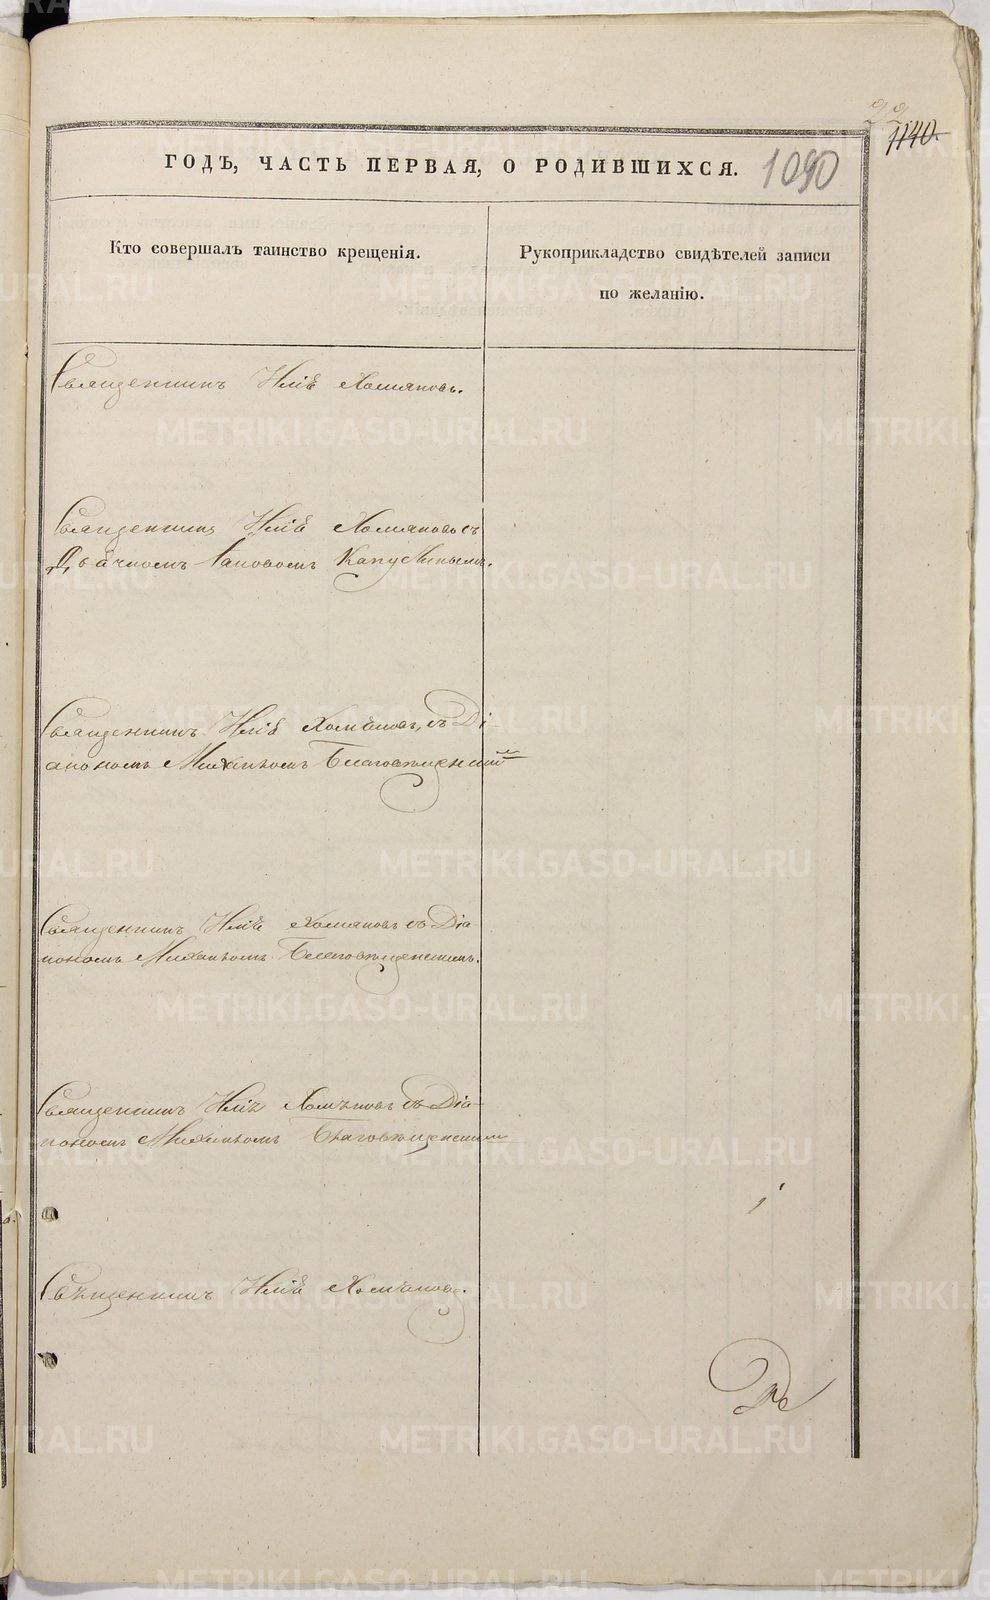 1140.
ГОДЪ, ЧАСТЬ ПЕРВАЯ, О РОДИВШИХСЯ. 1090
Кто совершалъ таинство крещенія.
Рукоприкладство свидѣтелей записи
по желанію.
Священникъ Илія Хомяковъ.
Священникъ Илія Хомяковъ съ
Дьячкомъ Іаковомъ Капустинымъ.
Священникъ Илія Хомяковъ, съ Ді-
акономъ Михаиломъ Благовѣщенскимъ
Священникъ Илія Хомяковъ съ Діа-
кономъ Михаиломъ Благовѣщенскимъ.
Священникъ Илія Хомяковъ съ Діа-
кономъ Михаиломъ Благовѣщенскимъ
Священникъ Илія Хомяковъ.
METRIKI.GASO-URAL.RU